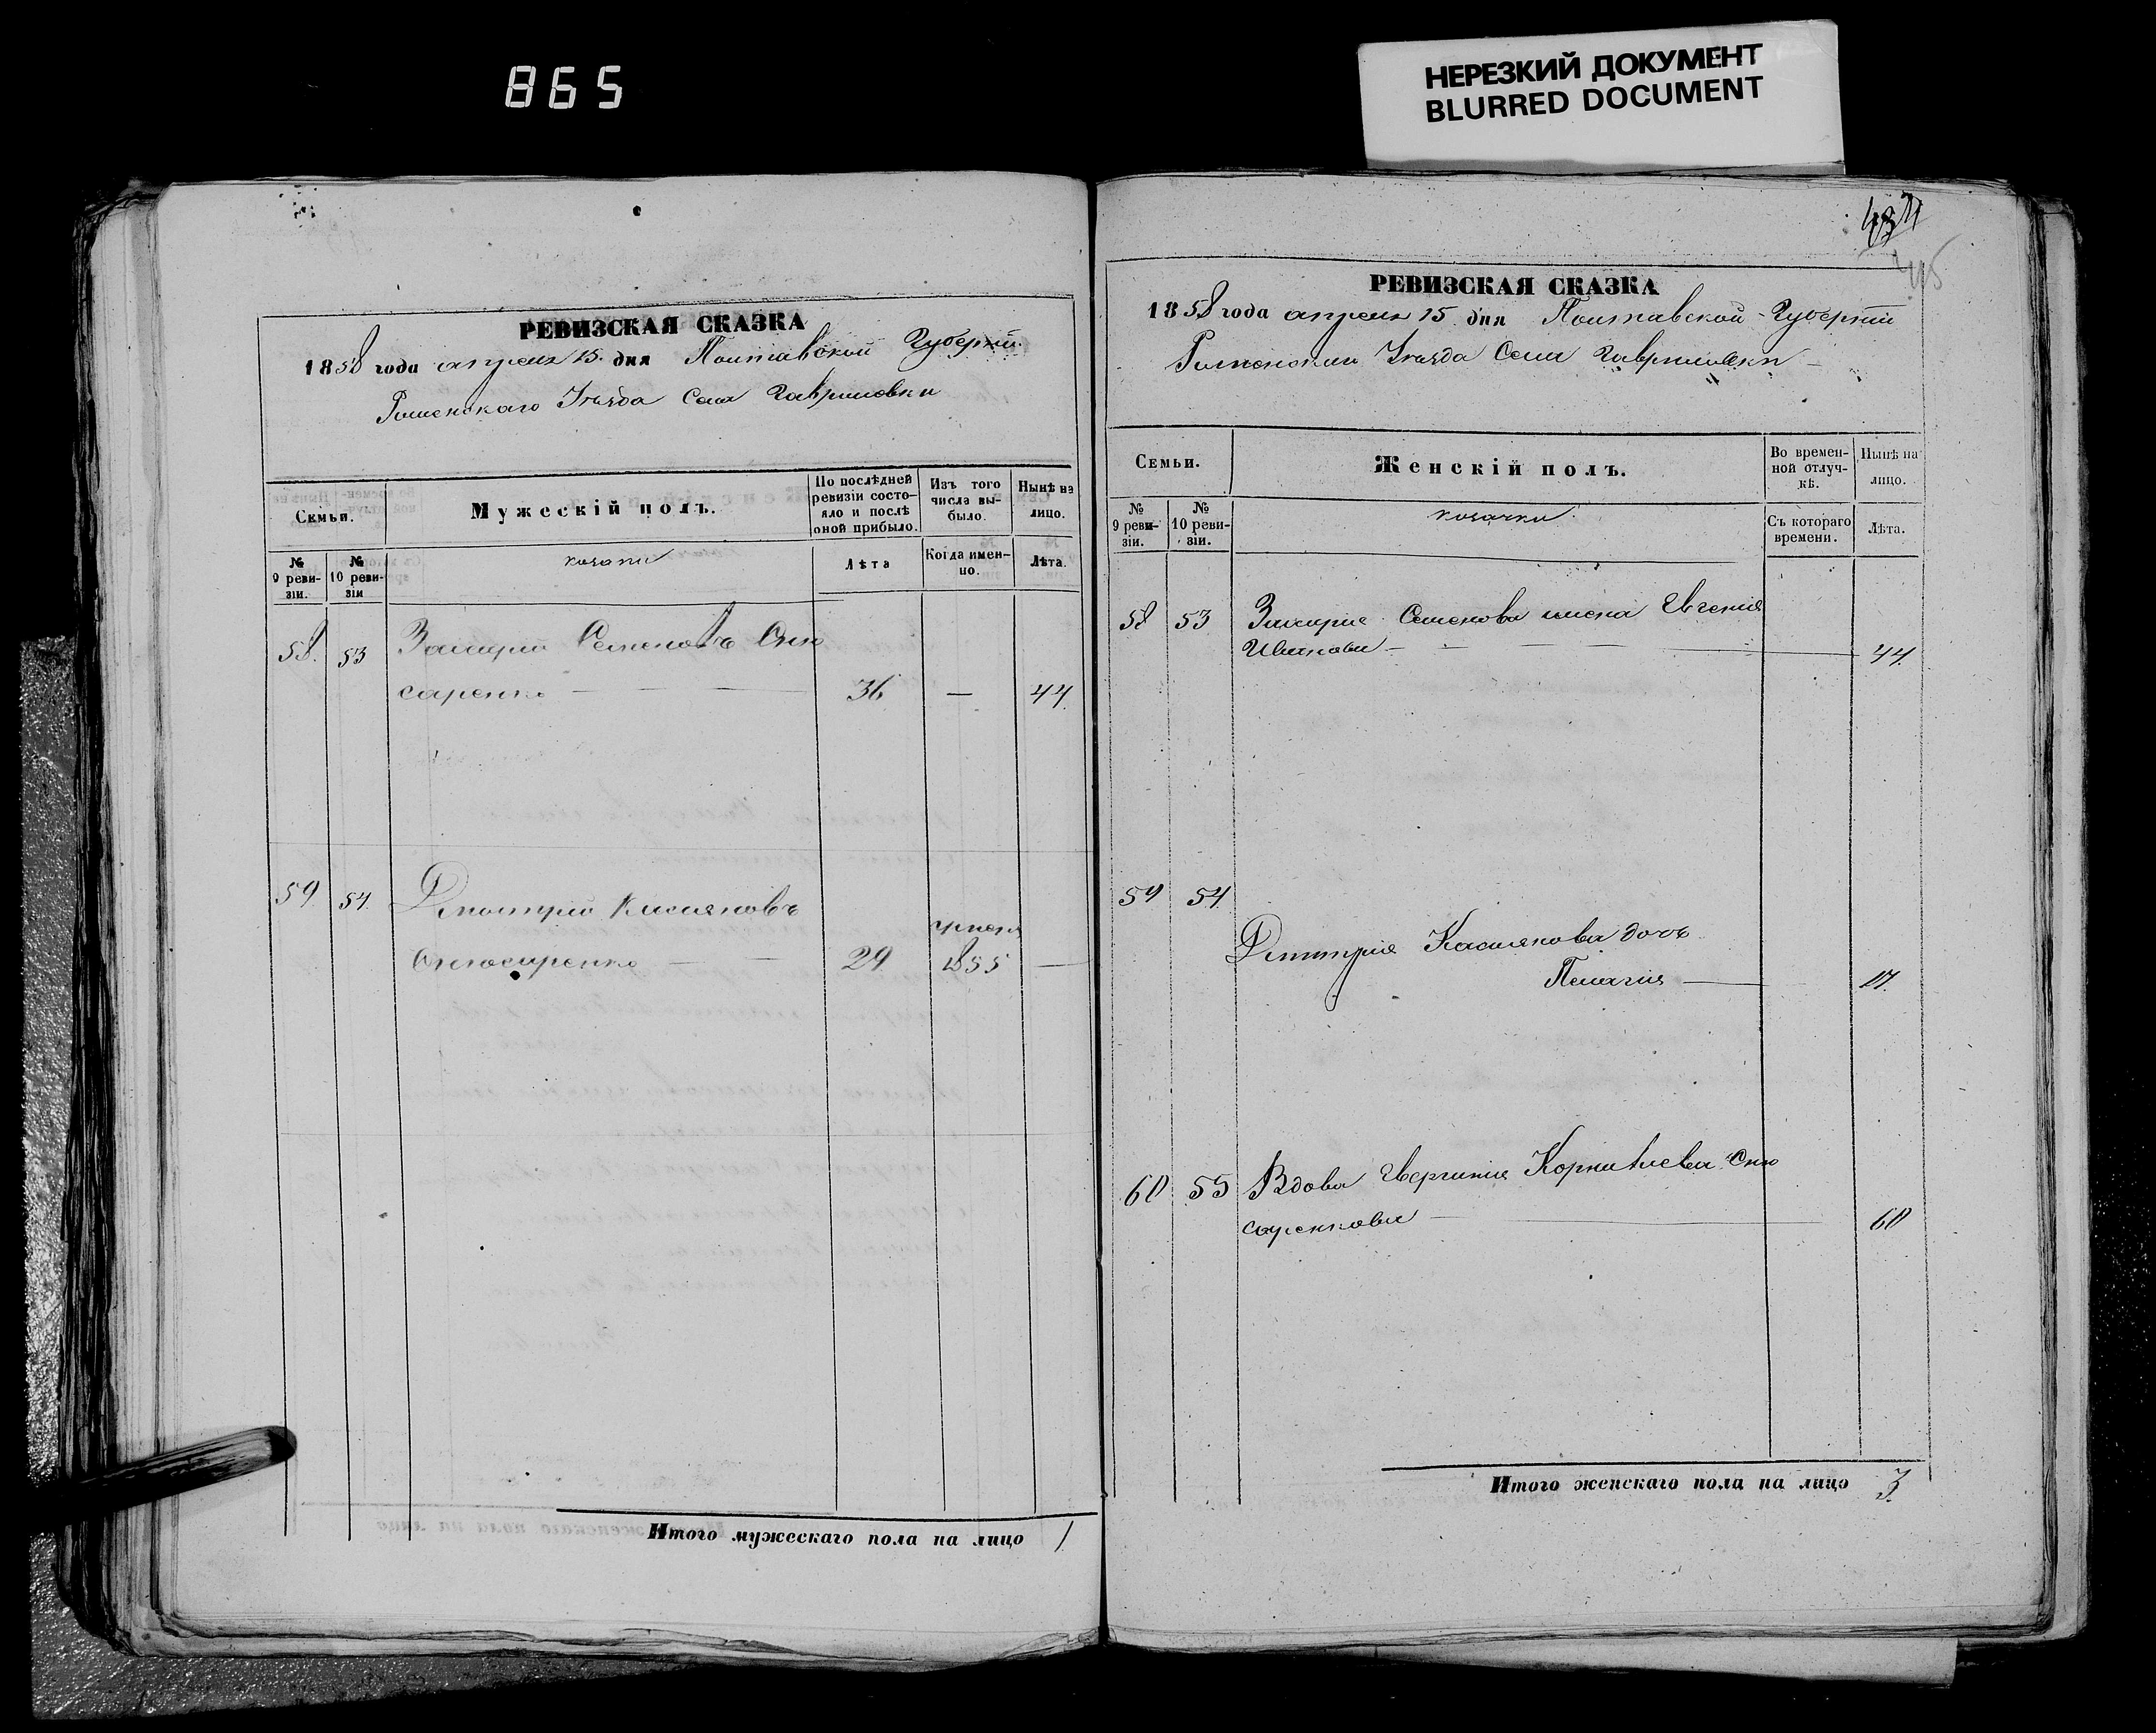 865
НЕРЕЗКИЙ ДОКУМЕНТ
BLURRED DOCUMENT
РЕВИЗСКАЯ СКАЗКА
1858 года апреля 15 дня Полтавской Губерніи
Роменскаго Уѣзда Села Гавриловки
Семьи.
Мужескій полъ.
По послѣдней ревизіи состояло и послѣ оной прибыло.
Изъ того числа выбыло.
Нынѣ на лицо.
№ 9 ревизіи.
№ 10 ревизіи
козаки
Лѣта
Когда именно.
Лѣта.
58. 53 Захарій Семеновъ Сню
саренко — — — 36 — 44.
59 54. Дмитрій Касьяновъ
умеръ
Снюсаренко — — 29 1855 —
Итого мужескаго пола на лицо 1
434
РЕВИЗСКАЯ СКАЗКА
1858 года апреля 15 дня Полтавской Губерніи
Роменскаго Уѣзда Села Гавриловки
Семьи.
Женскій полъ.
Во временной отлучкѣ.
Нынѣ на лицо.
№ 9 ревизіи.
№ 10 ревизіи.
козачки
Съ котораго времени.
Лѣта.
58 53 Захарія Семенова жена Евгенія
Иванова — 44.
59 54
Дмитрія Касьянова дочь
Пелагия — 17.
60 55 Вдова Корнилиева Сню
саренкова — 60
Итого женскаго пола на лицо 3.